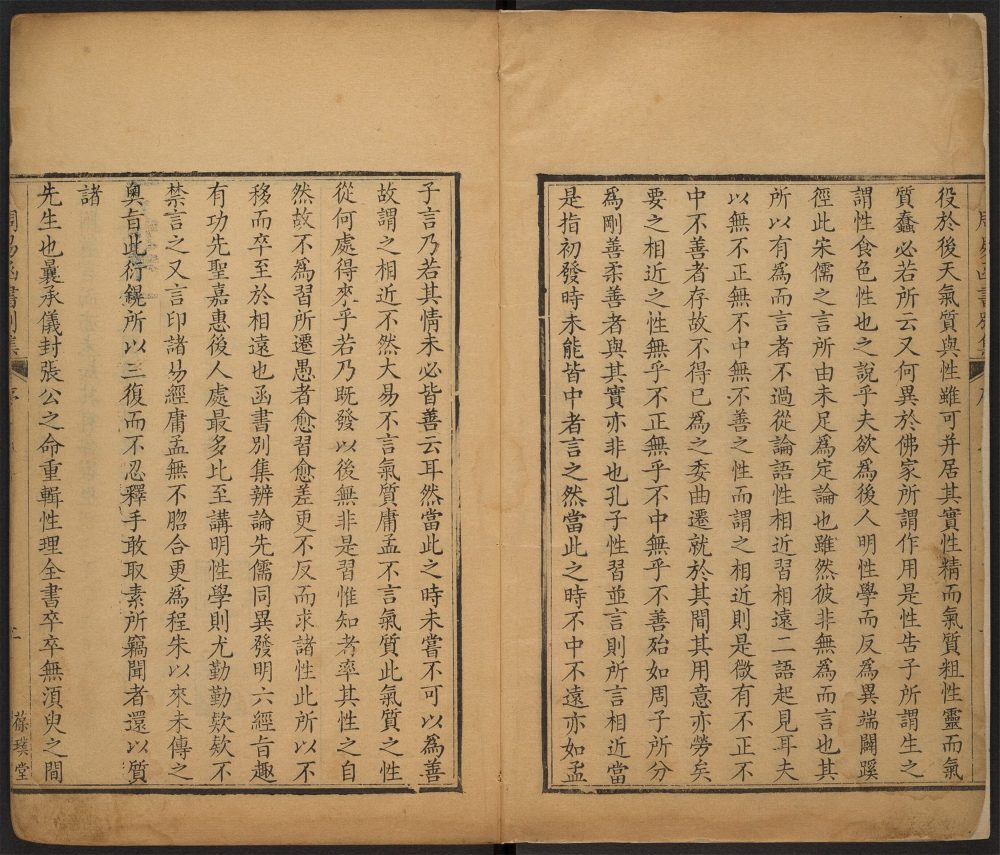 役於後天氣質與性雖可并居其實性精而氣質粗性靈而氣
質蠢必若所云又何異於佛家所謂作用是性告子所謂生之
謂性食色性也之說乎夫欲為後人明性學而反為異端闢蹊
徑此宋儒之言所由未足為定論也雖然彼非無為而言也其
所以有為而言者不過從論語性相近習相遠二語起見耳夫
以無不正無不中無不善之性而謂之相近則是微有不正不
中不善者存故不得已為之委曲遷就於其間其用意亦勞矣
要之相近之性無乎不正無乎不中無乎不善殆如周子所分
為剛善柔善者與其實亦非也孔子性習並言則所言相近當
是指初發時未能皆中者言之然當此之時不中不遠亦如孟
子言乃若其情未必皆善云耳然當此之時未嘗不可以為善
故謂之相近不然大易不言氣質庸孟不言氣質此氣質之性
從何處得來乎若乃既發以後無非是習惟知者率其性之自
然故不為習所遷愚者愈習愈差更不反而求諸性此所以不
移而卒至於相遠也函書別集辨論先儒同異發明六經旨趣
有功先聖嘉惠後人處最多比至講明性學則尤勤勤欵欵不
禁言之又言印諸易經庸孟無不脗合更為程朱以來未傳之
奧旨此衍鎤所以三復而不忍釋手敢取素所竊聞者還以質
諸
先生也曩承儀封張公之命重輯性理全書卒卒無湏臾之間
周易函書別集
序
葆璞堂